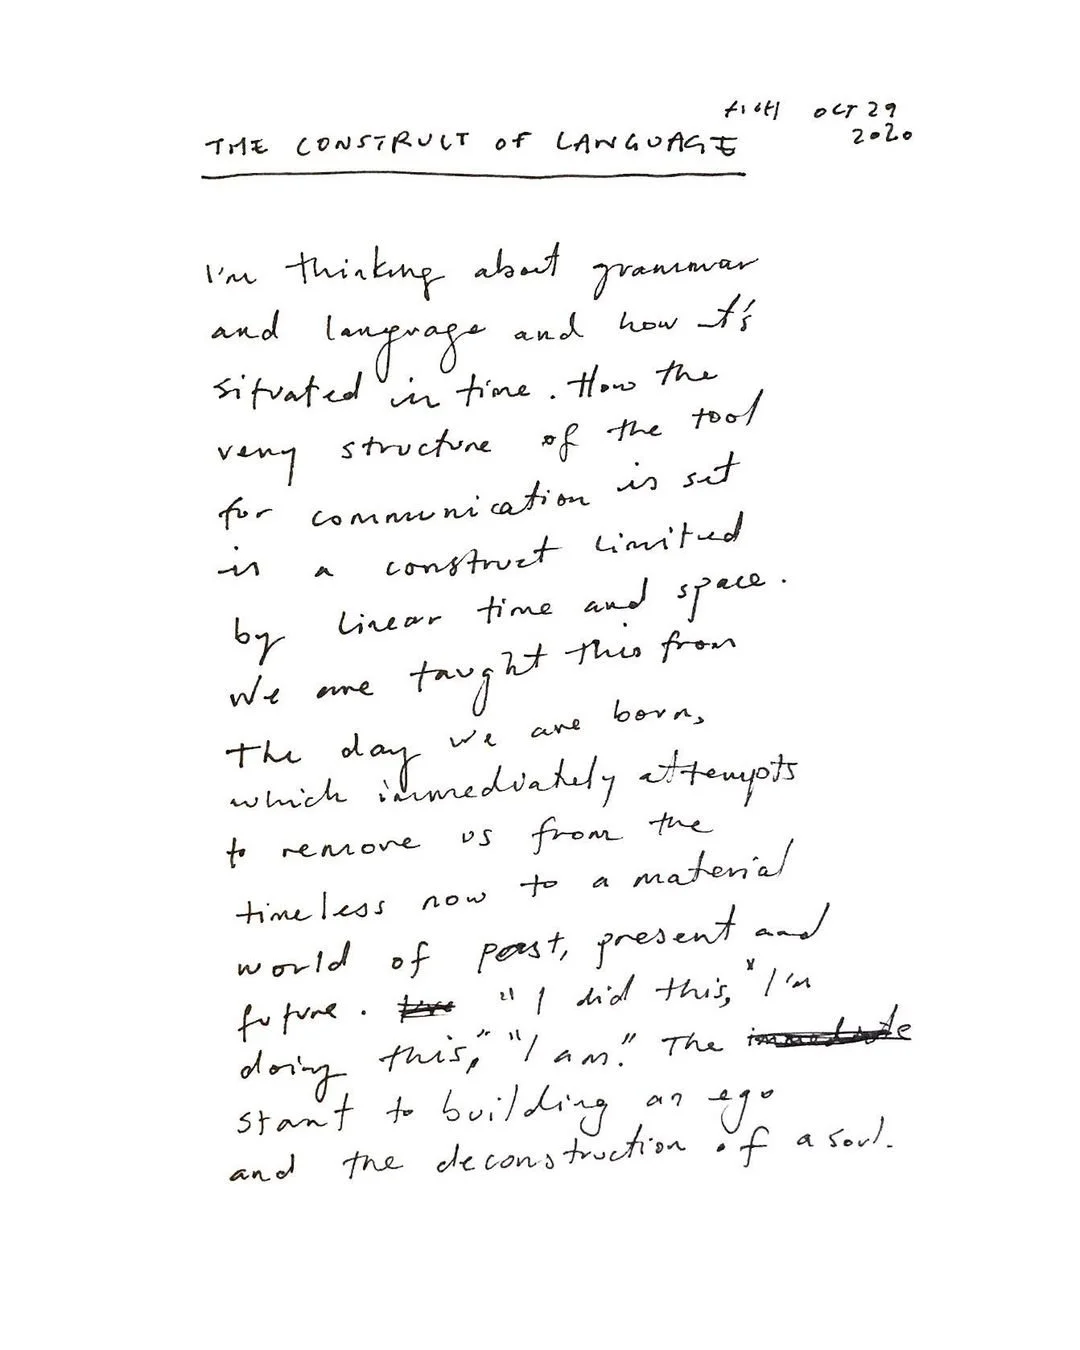 OCT 29
THE CONSTRUCT OF LANGUAGE 2020
I'm thinking about grammar
and language and how it's
situated in time. How the
very structure of the tool
for communication is set
in a construct limited
by linear time and space.
We are taught this from
the day we are born,
which immediately attempts
to remove us from the
timeless now to a material
world of past, present and
future. "I did this," "I'm
doing this," "I am." The
start to building an ego
and the deconstruction of a soul.